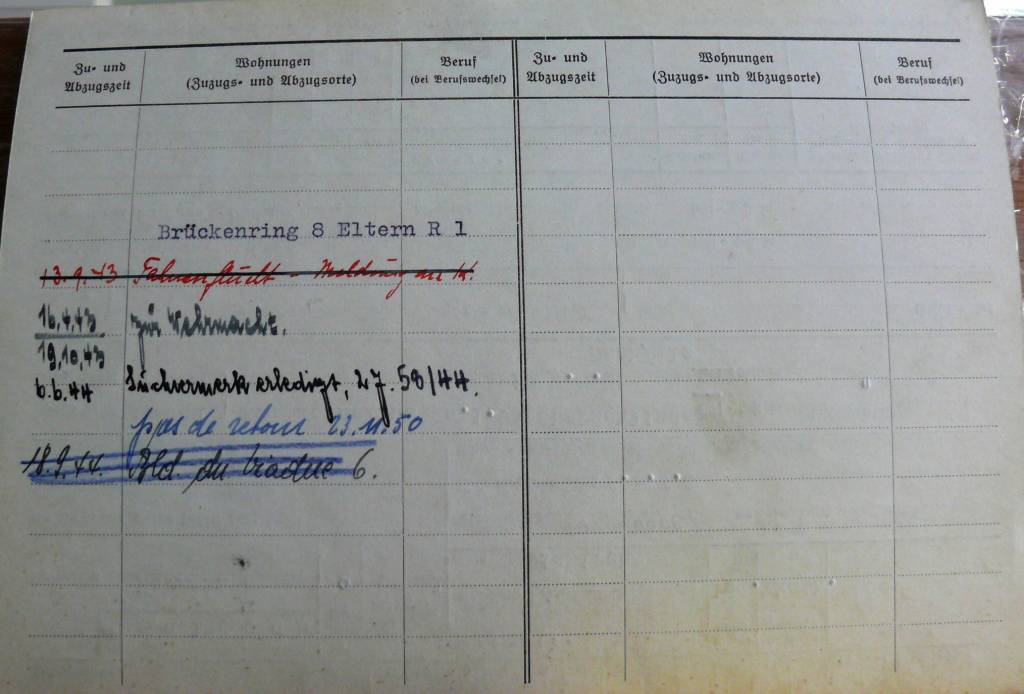 Zu- und Abzugszeit Wohnungen (Zuzugs- und Abzugsorte) Beruf (bei Berufswechsel) Zu- und Abzugszeit Wohnungen (Zuzugs- und Abzugsorte) Beruf (bei Berufswechsel)
Brückenring 8 Eltern R 1
13.9.43 Fahnenflucht - Meldung an K.
16.4.43 zur Wehrmacht.
19.10.43
6.6.44 Suchvermerk erledigt, 27.58/44.
pas de retour 23.11.50
18.9.44. Bld du Viaduc 6.